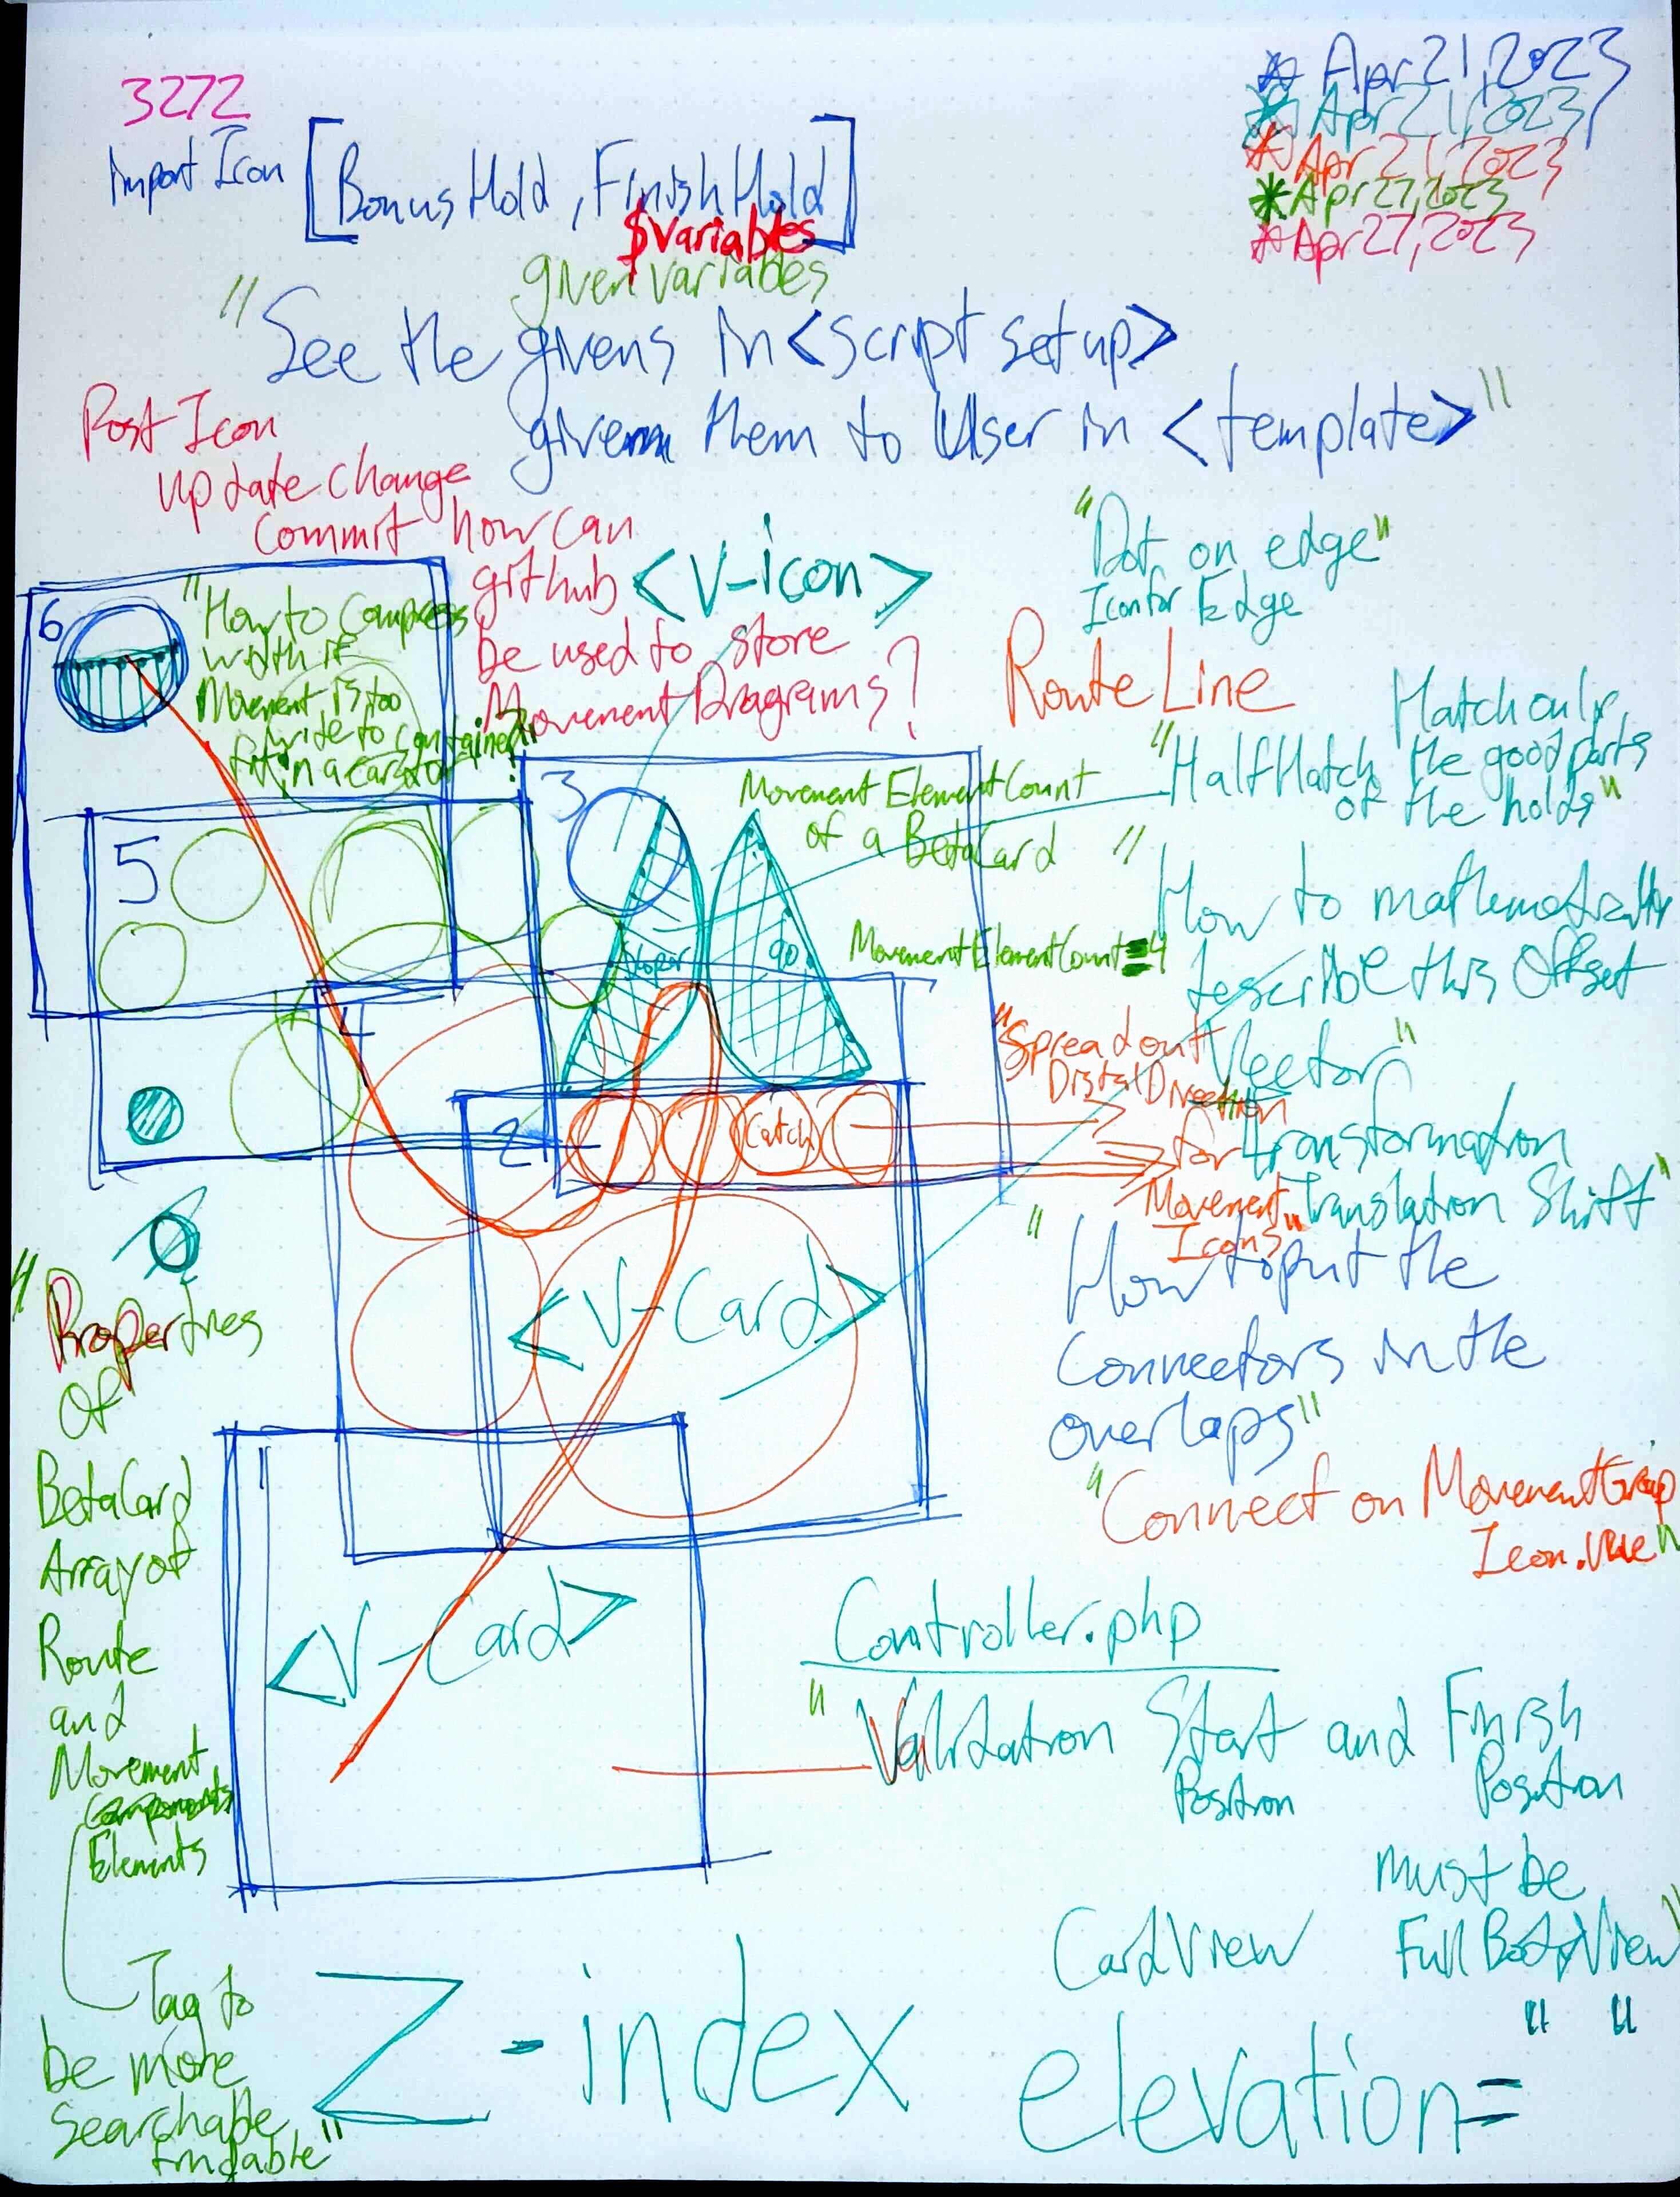 3272
Import Icon [BonusHold, FinishHold]
$variables
given variables
* Apr 21, 2023
* Apr 21, 2023
* Apr 21, 2023
* Apr 27, 2023
* Apr 27, 2023
"See the givens in <script setup>
given them to User in <template>"
Post Icon
update change
commit how can
github
be used to store
Movement Diagrams?
<V-icon>
"Dot on edge"
Icon for Edge
Route Line
6
"How to Compress
width if
Movement is too
wide to
fit in a card container?"
Hatch only
"Half Hatch the good parts
of the holds"
3
Movement Element Count
of a BetaCard
5
"How to mathematically
describe this Offset
Vector"
Transformation
Translation Shift"
go
MovementElementCount=4
4
"Spread out
Distal Direction
for
Movement
Icons"
2
Catch
"How to put the
Connectors in the
overlaps"
<V-Card>
"Properties
Of
BetaCard
Array of
Route
and
Movement
Components
Elements
Tag to
be more
Searchable
findable"
"Connect on MovementGroup
Icon.vue"
1
<V-Card>
Controller.php
"Validation Start and Finish
Position Position
must be
CardView Full Body View"
Z-index
elevation=" "